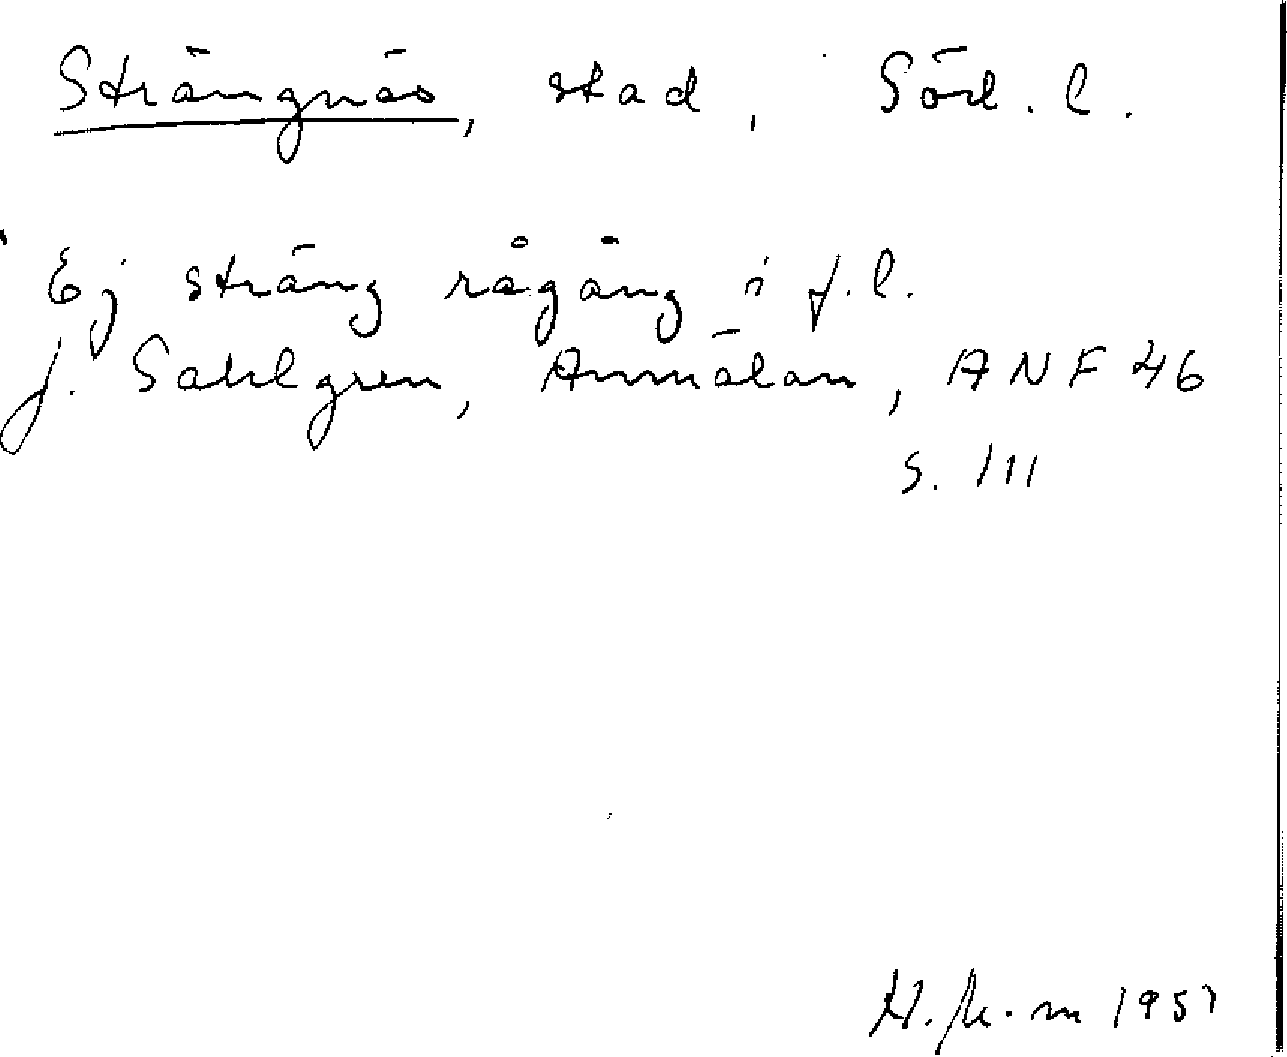 Strängnäs, stad, Söd. l.
Ej sträng rågång i f.l.
J. Sahlgren, Anmälan, ANF 46
s. 111
1957